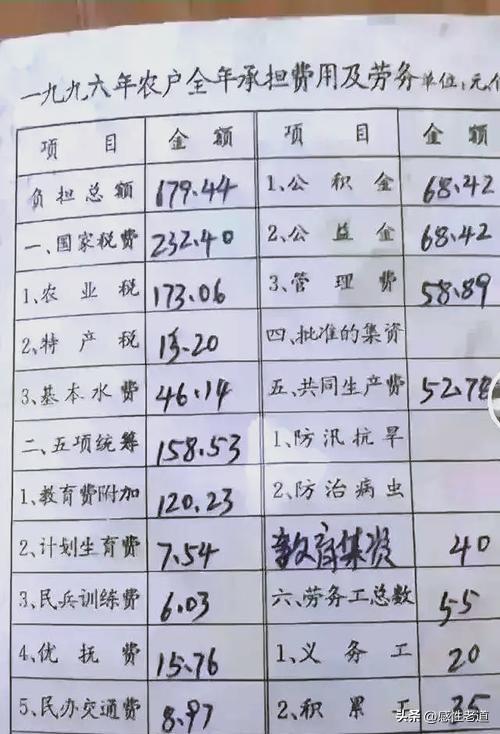 一九九六年农户全年承担费用及劳务 单位:元、
项 目 金 额 项 目 金 额
负担总额 679.44 1.公积金 68.42
一、国家税费 232.40 2.公益金 68.42
1、农业税 173.06 3、管理费 58.89
2、特产税 13.20 四、批准的集资
3、基本水费 46.14 五、共同生产费 52.78
二、五项统筹 158.53 1、防汛抗旱
1、教育费附加 120.23 2、防治病虫
2、计划生育费 7.54 教育集资 40
3、民兵训练费 6.03 六、劳务工总数 55
4、优抚费 15.76 1、义务工 20
5、民办交通费 8.97 2、积累工 35
头条 @咸性老道